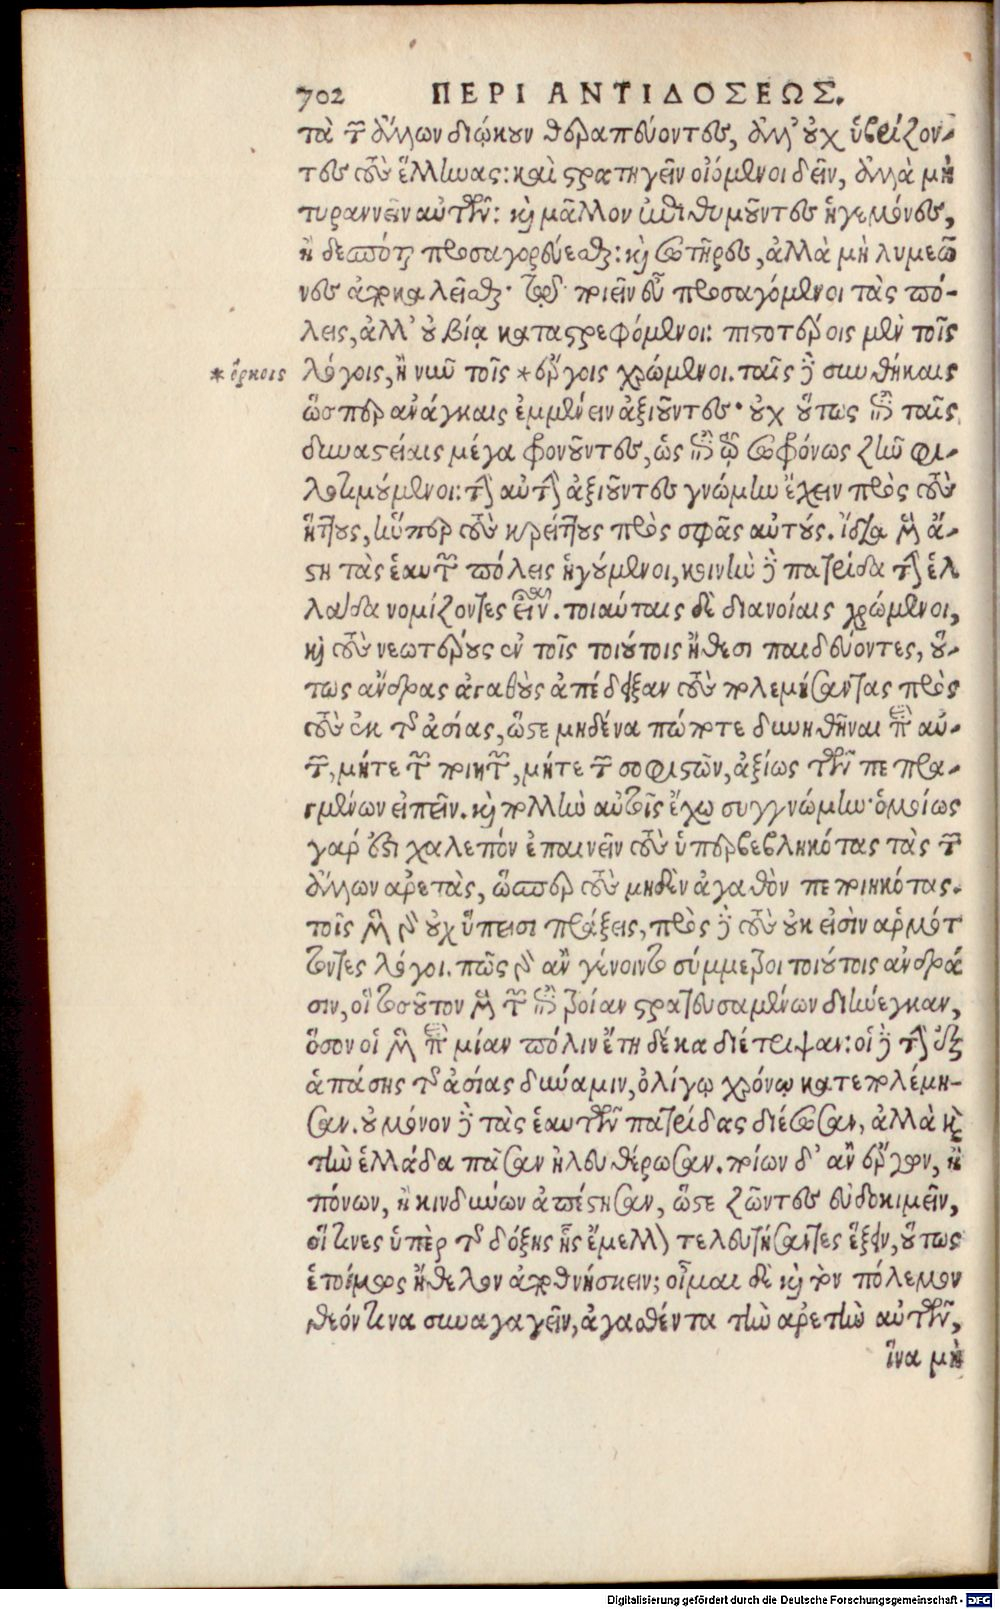 702 ΠΕΡΙ ΑΝΤΙΔΟΣΕΩΣ.
τὰ τῶν ἄλλων διῴκουν θεραπεύοντες, ἀλλ' οὐχ ὑβρίζον-
τες τοὺς ἕλληνας: καὶ στρατηγεῖν οἰόμενοι δεῖν, ἀλλὰ μὴ
τυραννεῖν αὐτῶν: καὶ μᾶλλον ἐπιθυμοῦντες ἡγεμόνες,
ἢ δεσπόται προσαγορεύεσθαι: καὶ σωτῆρες, ἀλλὰ μὴ λυμεῶ
νες ἀποκαλεῖσθαι· τῷ ποιεῖν εὖ προσαγόμενοι τὰς πό-
λεις, ἀλλ' οὐ βίᾳ καταστρεφόμενοι: πιστοτέροις μὲν τοῖς
*ὅρκοις λόγοις, ἢ νῦν τοῖς *ἔργοις χρώμενοι. ταῖς δὲ συνθήκαις
ὥσπερ ἀνάγκαις ἐμμένειν ἀξιοῦντες· οὐχ οὕτως ἐπὶ ταῖς
δυναστείαις μέγα φρονοῦντες, ὡς ἐπὶ τῷ σωφρόνως ζῆν φι-
λοτιμούμενοι: τὴν αὐτὴν ἀξιοῦντες γνώμην ἔχειν πρὸς τοὺς
ἥττους, ἥνπερ τοὺς κρείττους πρὸς σφᾶς αὐτούς. ἴδια μὲν ἄ-
στη τὰς ἑαυτῶν πόλεις ἡγούμενοι, κοινὴν δὲ πατρίδα τὴν ἑλ
λάδα νομίζοντες εἶναι. τοιαύταις δὲ διανοίαις χρώμενοι,
καὶ τοὺς νεωτέρους ἐν τοῖς τοιούτοις ἤθεσι παιδεύοντες, οὕ-
τως ἄνδρας ἀγαθοὺς ἀπέδειξαν τοὺς πολεμήσαντας πρὸς
τοὺς ἐκ τῆς ἀσίας, ὥστε μηδένα πώποτε δυνηθῆναι περὶ αὐ-
τῶν, μήτε τῶν ποιητῶν, μήτε τῶν σοφιστῶν, ἀξίως τῶν πεπρα-
γμένων εἰπεῖν. καὶ πολλὴν αὐτοῖς ἔχω συγγνώμην· ὁμοίως
γάρ ἐστι χαλεπόν ἐπαινεῖν τοὺς ὑπερβεβληκότας τὰς τῶν
ἄλλων ἀρετὰς, ὥσπερ τοὺς μηδὲν ἀγαθὸν πεποιηκότας.
τοῖς μὲν γὰρ οὐχ ὕπεισι πράξεις, πρὸς δὲ τοὺς οὐκ εἰσὶν ἁρμότ
τοντες λόγοι. πῶς γὰρ ἂν γένοιντο σύμμετροι τοιούτοις ἀνδρά
σιν, οἳ τοσοῦτον μὲν τῶν ἐπὶ τροίαν στρατευσαμένων διήνεγκαν,
ὅσον οἱ μὲν περὶ μίαν πόλιν ἔτη δέκα διέτριψαν: οἱ δὲ τὴν ἐξ
ἁπάσης τῆς ἀσίας δύναμιν, ὀλίγῳ χρόνῳ κατεπολέμη-
σαν. οὐ μόνον δὲ τὰς ἑαυτῶν πατρίδας διέσωσαν, ἀλλὰ καὶ
τὴν ἑλλάδα πᾶσαν ἠλευθέρωσαν. ποίων δ' ἂν ἔργων, ἢ
πόνων, ἢ κινδύνων ἀπέστησαν, ὥστε ζῶντες εὐδοκιμεῖν,
οἵτινες ὑπὲρ τῆς δόξης ἧς ἔμελλον τελευτήσαντες ἕξειν, οὕτως
ἑτοίμως ἤθελον ἀποθνήσκειν; οἶμαι δὲ καὶ τὸν πόλεμον
θεόν τινα συναγαγεῖν, ἀγασθέντα τὴν ἀρετὴν αὐτῶν,
ἵνα μὴ
Digitalisierung gefördert durch die Deutsche Forschungsgemeinschaft - DFG